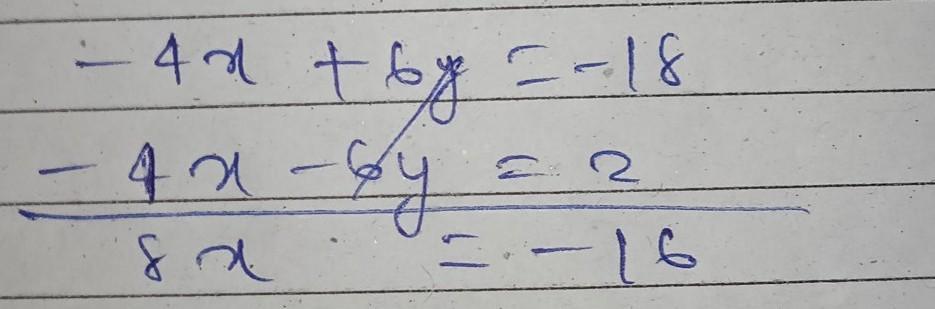 -4x + 6y = -18
-4x - 6y = 2
8x = -16